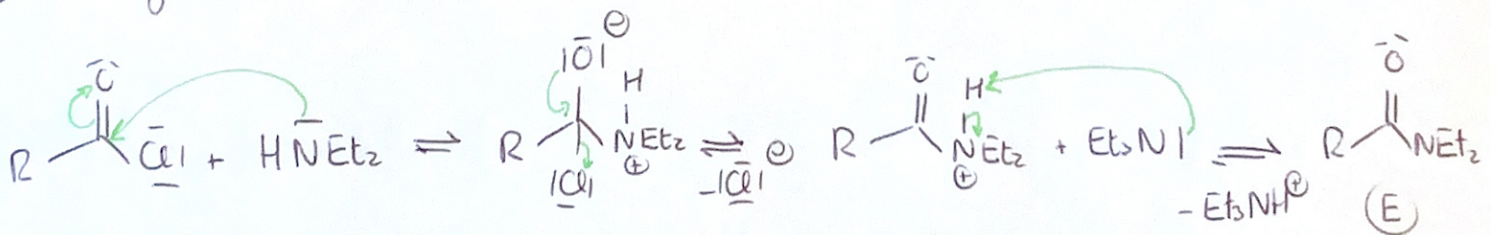 R O Cl + HNEt₂ ⇌ R |O| ⊖ H NEt₂ ⊕ |Cl| ⇌ -|Cl| ⊖ R O H NEt₂ ⊕ + Et₃N| ⇌ -Et₃NH⊕ R O NEt₂
(E)